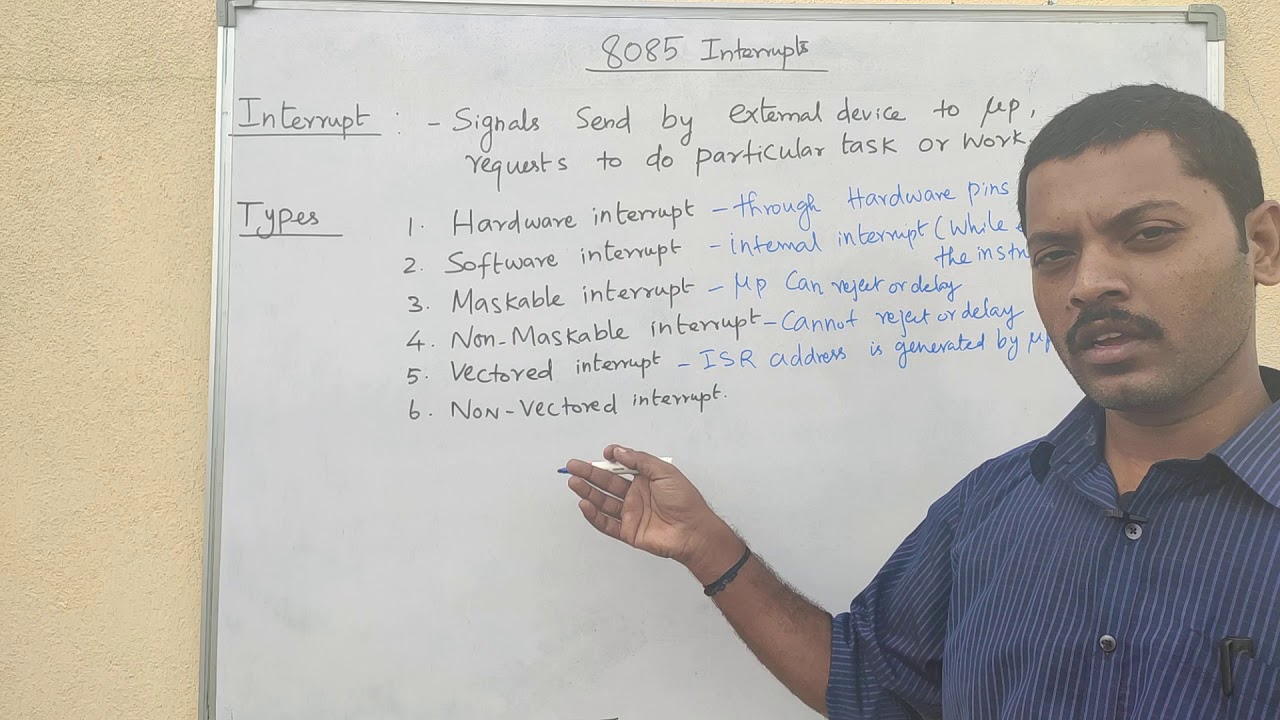 8085 Interrupts
Interrupt : - Signals Send by external device to μp,
requests to do particular task or work
Types 1. Hardware interrupt - through Hardware pins
2. Software interrupt - internal interrupt (While
the
3. Maskable interrupt - μp Can reject or delay
4. Non-Maskable interrupt - Cannot reject or delay
5. Vectored interrupt - ISR address is generated by μp
6. Non-Vectored interrupt.